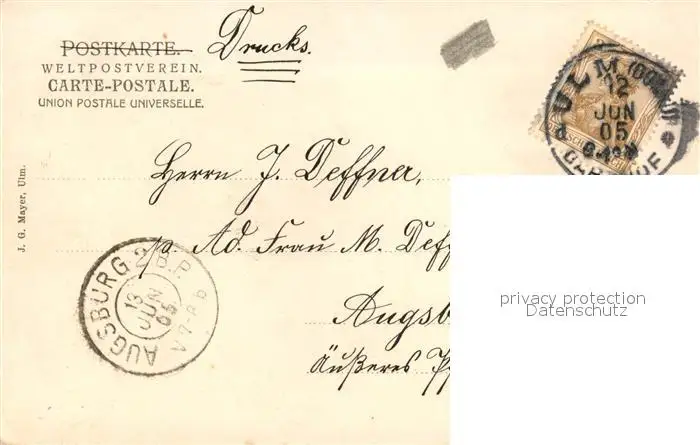 POSTKARTE. Drucks.
WELTPOSTVEREIN.
CARTE-POSTALE.
UNION POSTALE UNIVERSELLE.
ULM (DONAU)
12
JUN
05
BAHNHOF
Herrn J. Deffner,
p. Ad. Frau M. Deff
Augsb
Äußeres Pf
J. G. Mayer, Ulm.
AUGSBURG 2 B.P.
13
JUN
05
V 7-8 b
privacy protection
Datenschutz